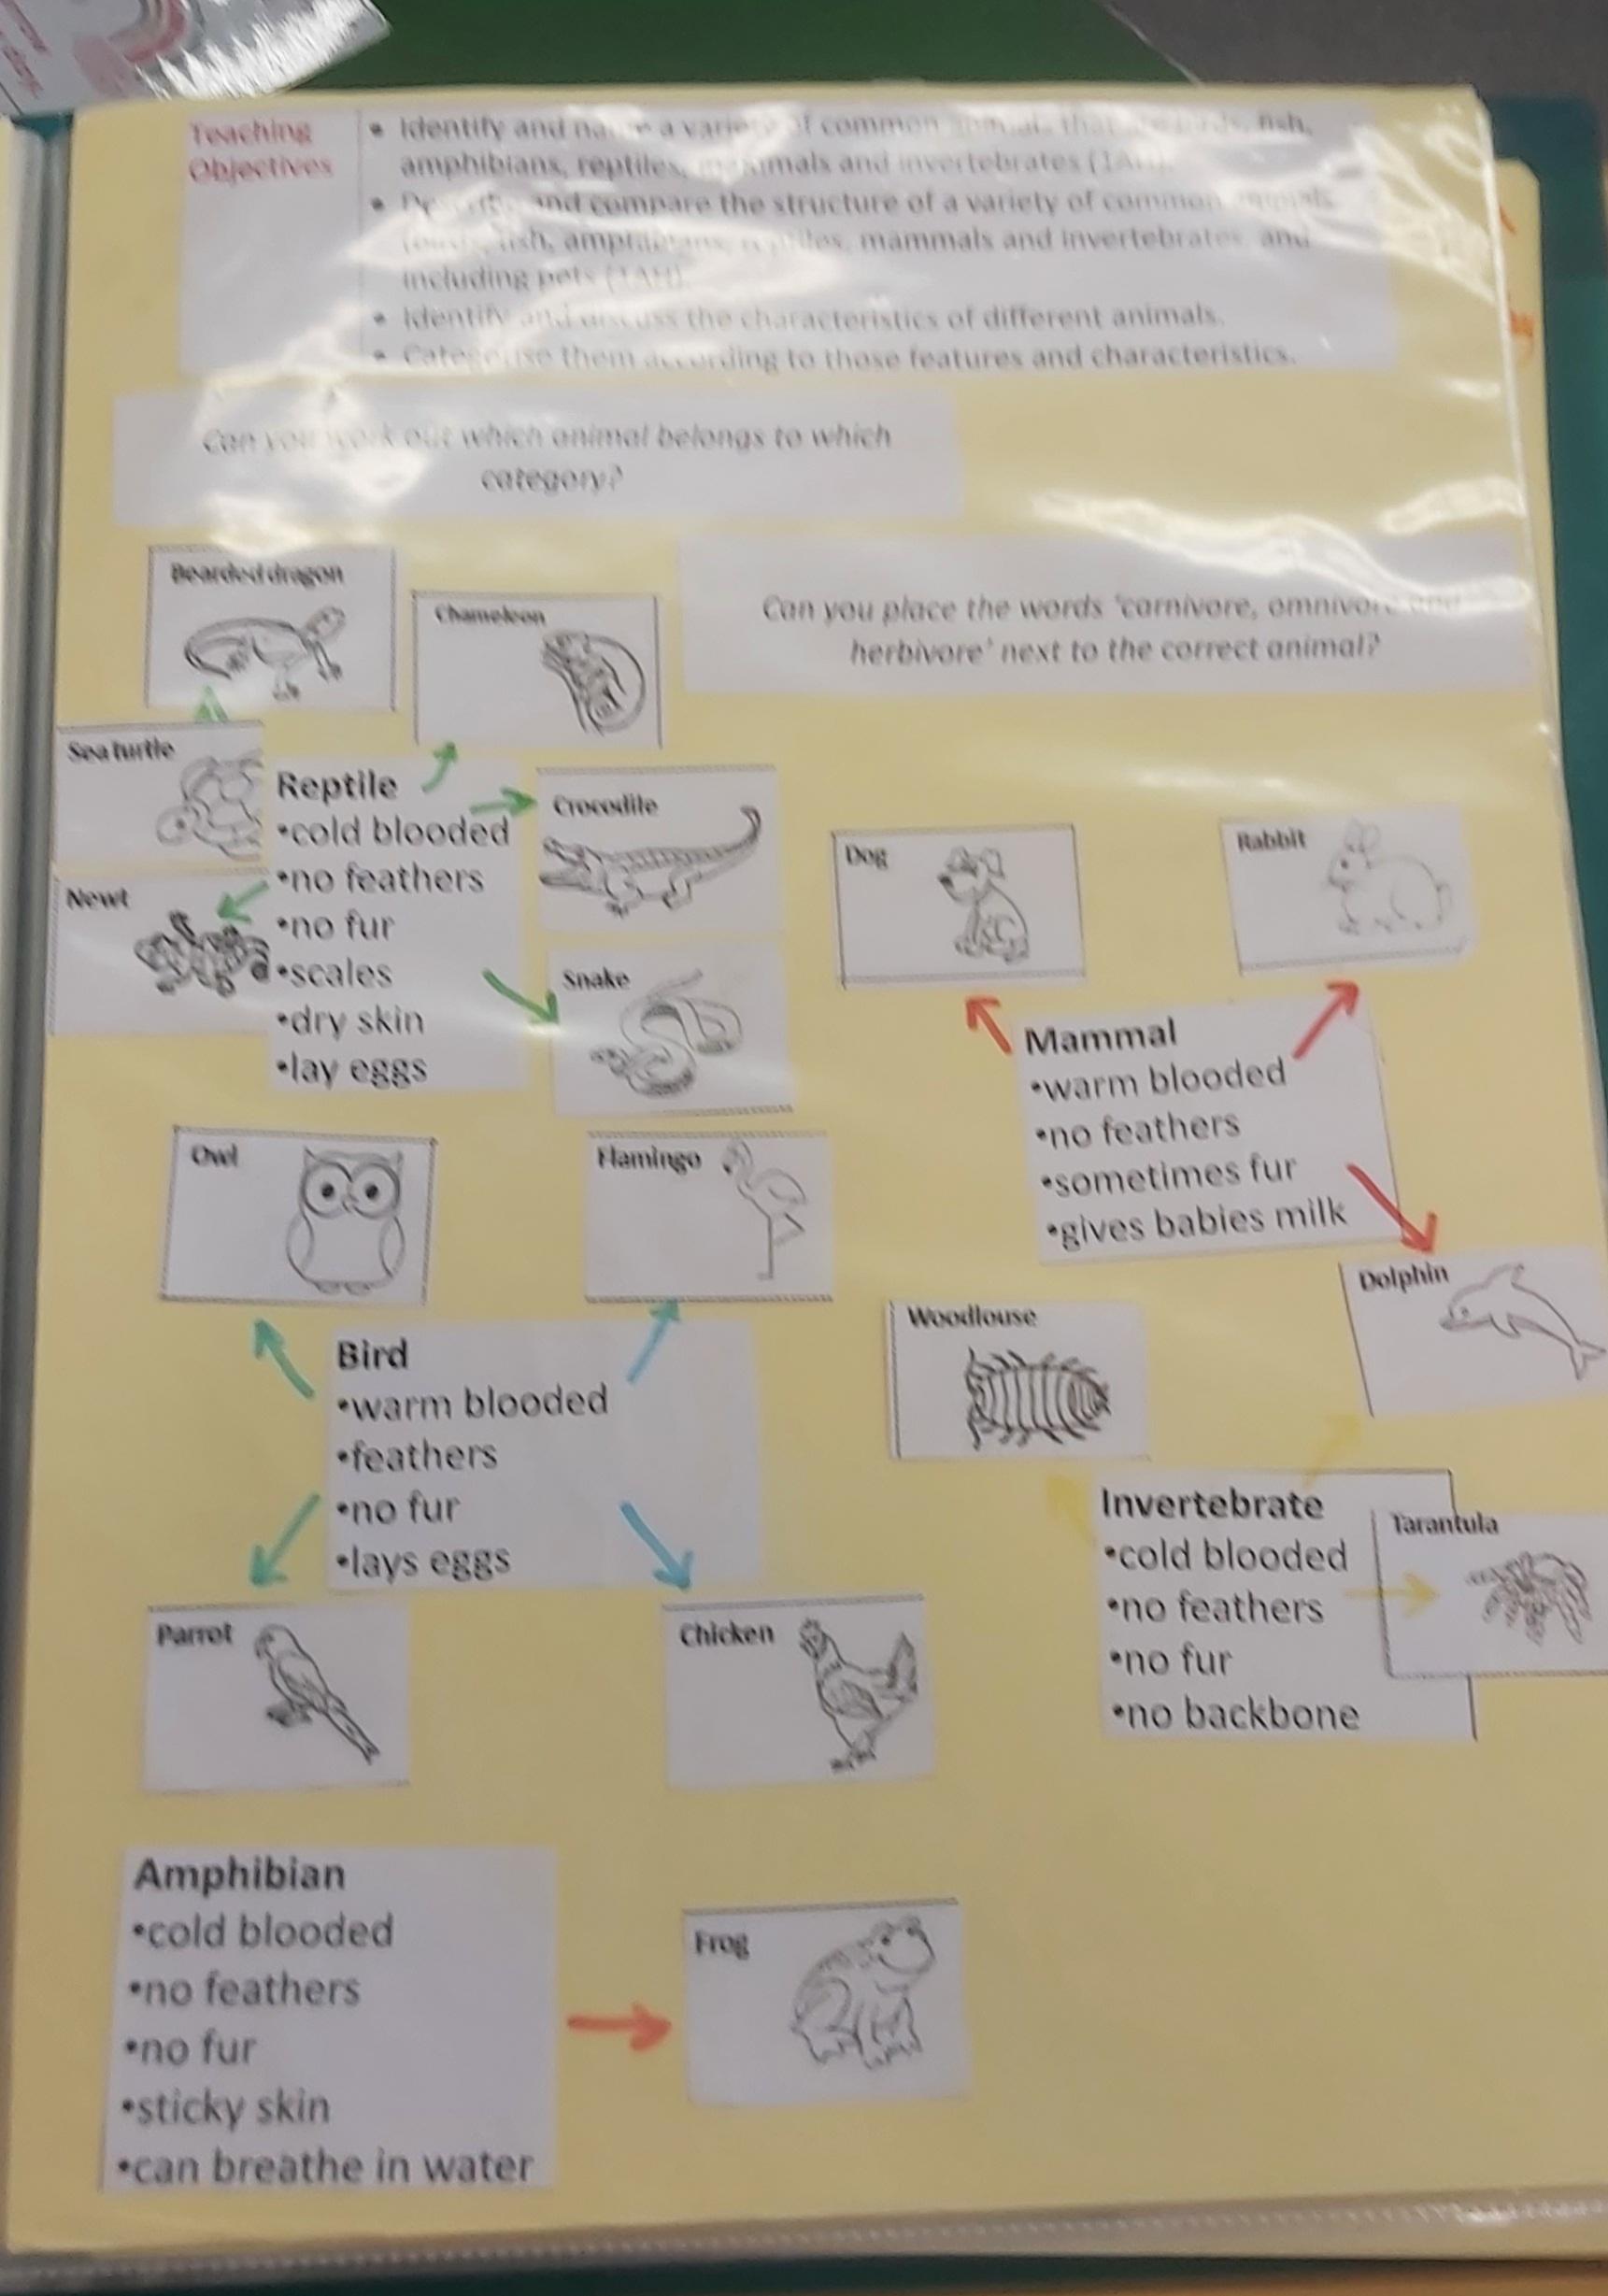 Teaching
Objectives
• Identify and name a variety of common animals that are birds, fish,
amphibians, reptiles, mammals and invertebrates (1AH).
• Describe and compare the structure of a variety of common animals
fish, amphibians, reptiles, mammals and invertebrates, and
including pets (1AH).
• Identify and discuss the characteristics of different animals.
• Categorise them according to those features and characteristics.
Can you work out which animal belongs to which
category?
Can you place the words 'carnivore, omnivore and
herbivore' next to the correct animal?
Bearded dragon
Chameleon
Sea turtle
Newt
Reptile
•cold blooded
•no feathers
•no fur
•scales
•dry skin
•lay eggs
Crocodile
Snake
Dog
Rabbit
Mammal
•warm blooded
•no feathers
•sometimes fur
•gives babies milk
Dolphin
Owl
Flamingo
Bird
•warm blooded
•feathers
•no fur
•lays eggs
Parrot
Chicken
Woodlouse
Invertebrate
•cold blooded
•no feathers
•no fur
•no backbone
Tarantula
Amphibian
•cold blooded
•no feathers
•no fur
•sticky skin
•can breathe in water
Frog